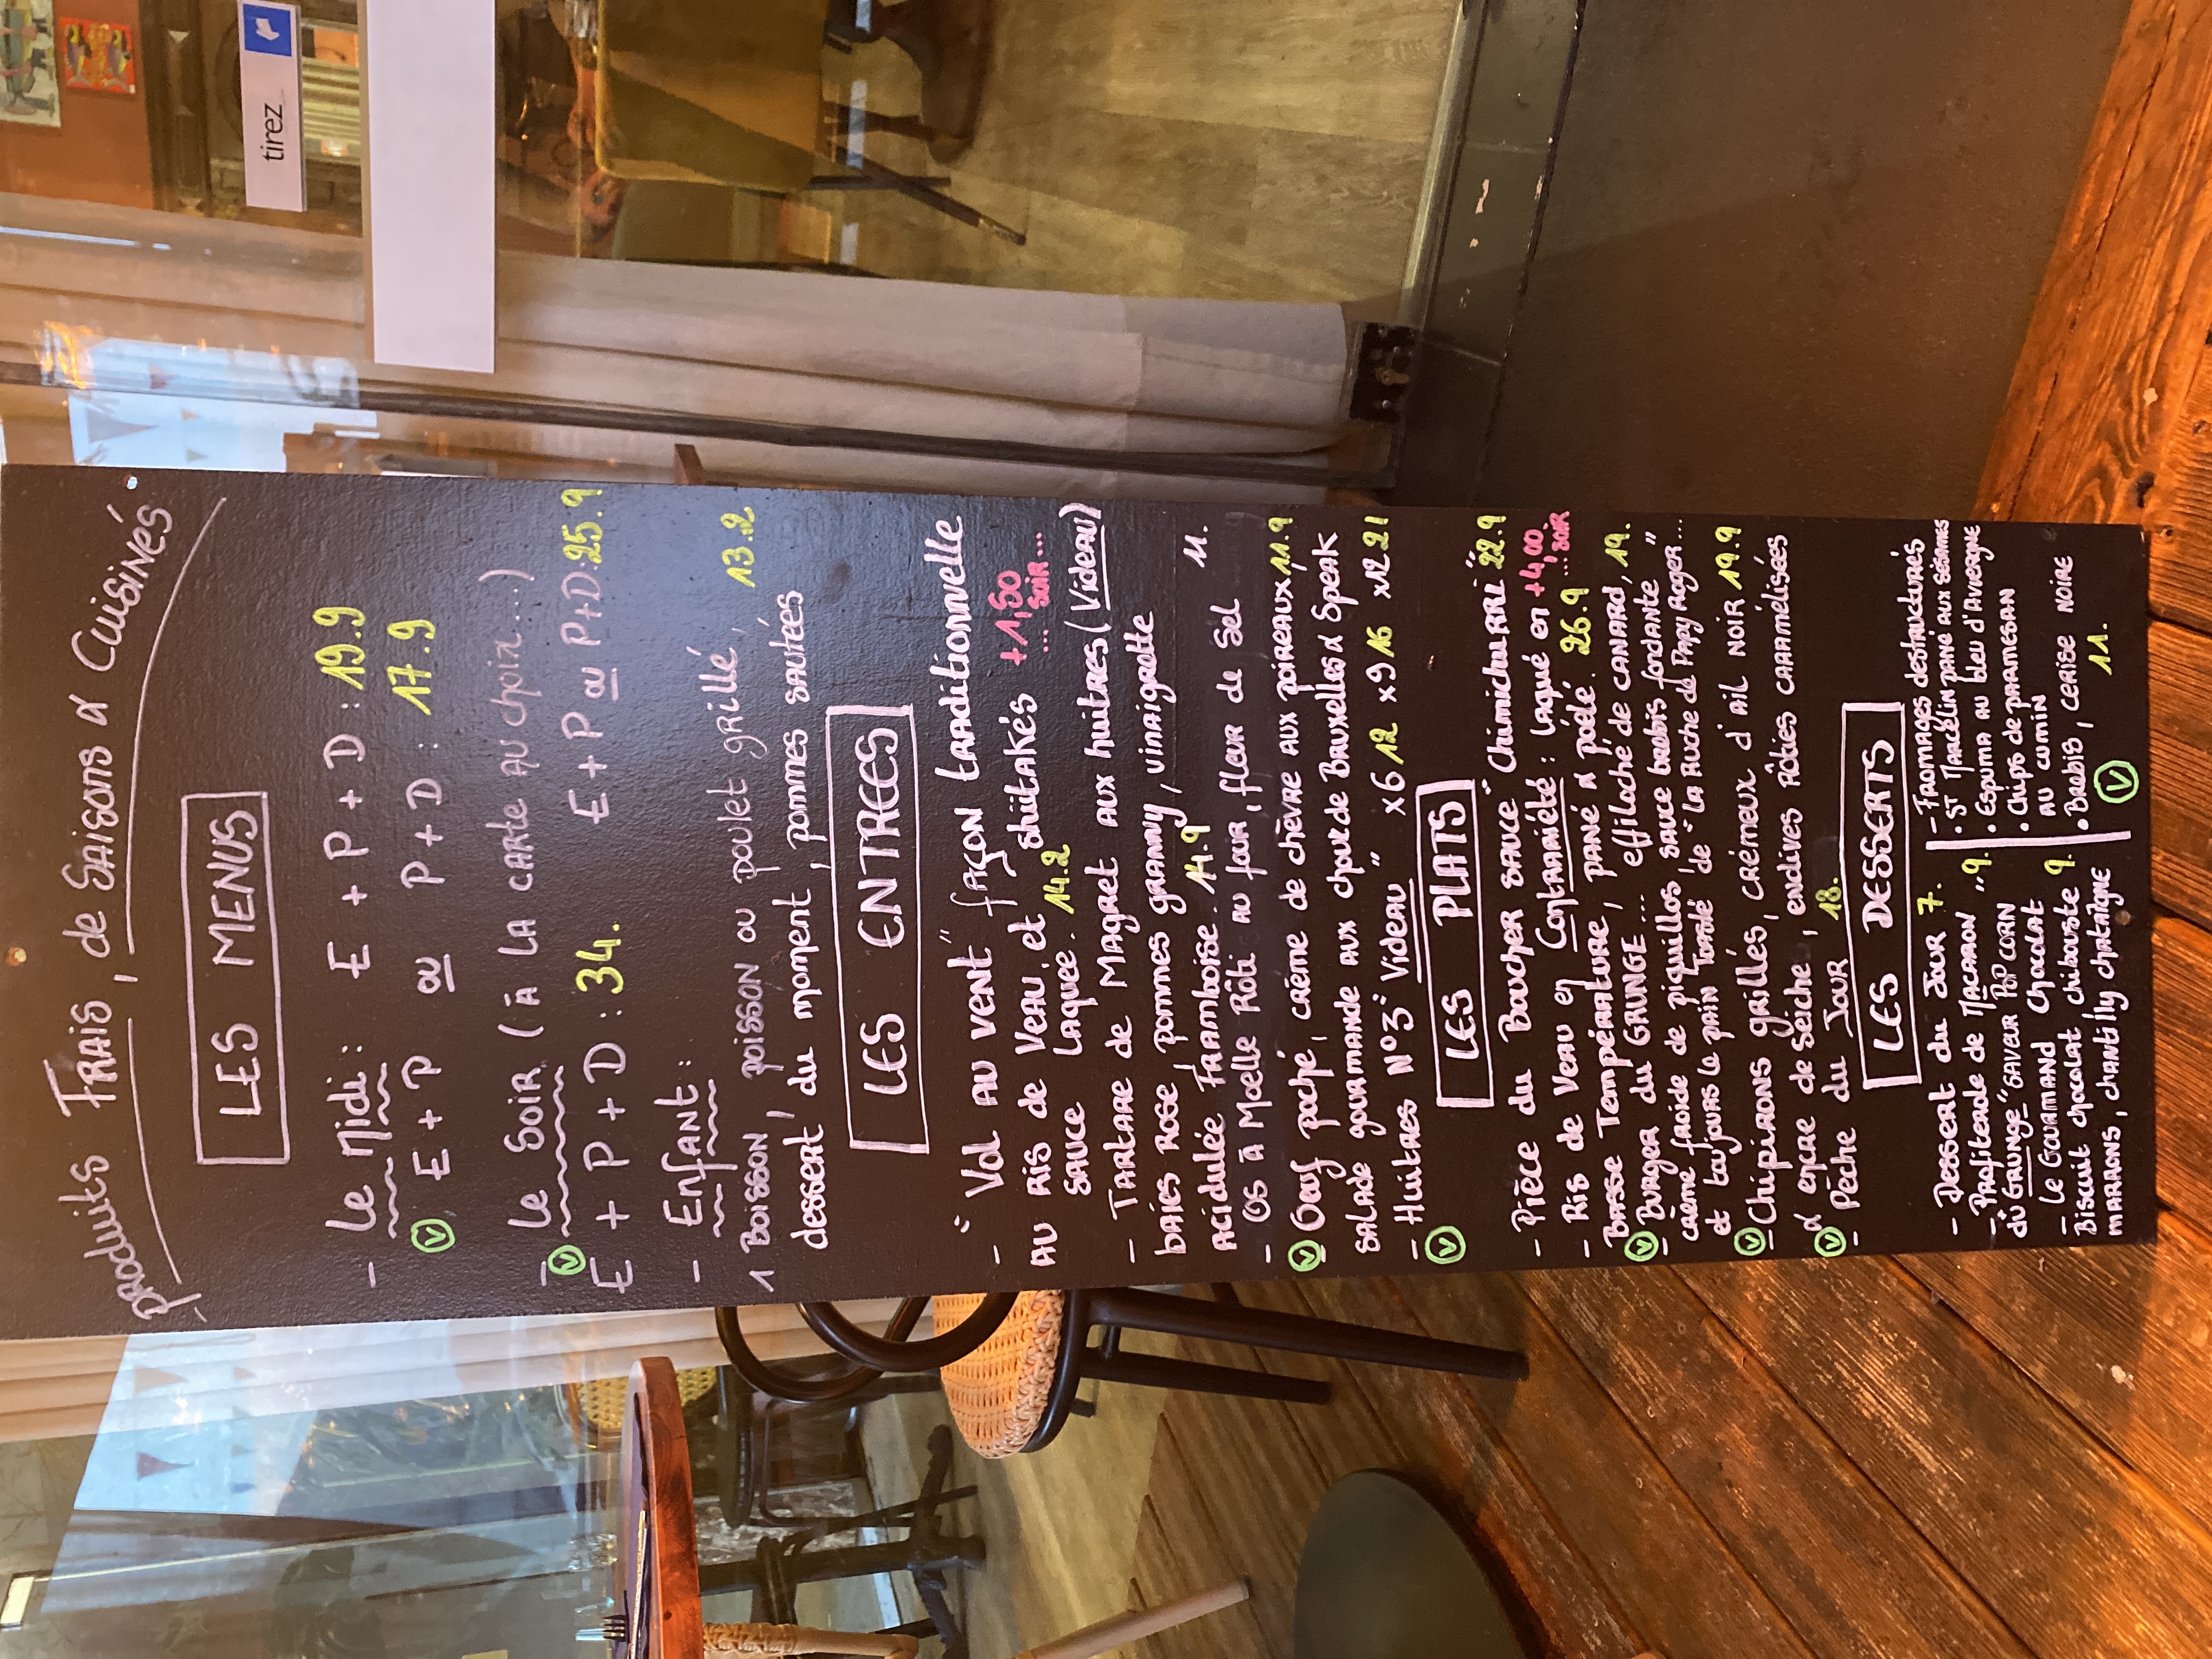 produits Frais, de Saisons & Cuisinés
LES MENUS
- Le Midi : E + P + D : 19.9
V E + P ou P + D : 17.9
- Le Soir (à LA CARTE AU choix....)
V E + P + D : 34. E + P ou P + D : 25.9
- Enfant :
1 Boisson, poisson ou poulet grillé, 13.2
dessert du moment, pommes sautées
LES ENTREES
- "Vol AU VENT" façon traditionnelle
AU RIS de VEAU, et shiitakés +1,50
SAUCE Laquée. 14.2 ... SOIR...
- TARTARE de MAGRET AUX huitres (Videau)
baies Rose, pommes granny, vinaigrette
Acidulée Framboise. 14.9
- OS à Moelle Rôti au four, fleur de Sel 11.
V Oeuf poché, crème de chèvre aux poireaux, 11.9
SALADE gourmande aux choux de Bruxelles & Speak
- Huitres N°3 "Videau" x6 12 x9 16 x12 21
V
LES PLATS
- Pièce du Boucher SAUCE "Chimichurri" 22.9
- Ris de Veau en Contrariété : laqué en +4,00
Basse Température, pané & poêlé. 26.9 ...SOIR
V - Burger du GRUNGE... effiloché de CANARD, 19.
crème froide de piquillos, sauce brebis fondante
et toujours le pain Torsdé de "La Ruche de Papy Roger"...
V - Chipirons grillés, crémeux d'ail NOIR 19.9
& encre de Seiche, endives Rôties caramélisées
V - Pêche du Jour 18.
LES DESSERTS
- Dessert du Jour 7.
- Profiterole de MACARON 9.
du "GRUNGE" SAVEUR POP CORN
- Le GOURMAND Chocolat
Biscuit chocolat chibouste 9.
MARRONS, chantilly chataîgne
- Fromages destructurés
• ST Marcelin pané aux sésames
• Espuma au bleu d'Auvergne
• Chips de parmesan
au cumin
• Brebis, CERISE NOIRE
V 11.
tirez